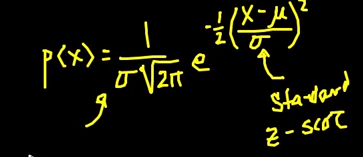 p(x) = 1/(σ√2π) e^(-1/2((x-μ)/σ)^2)
Standard
z-score